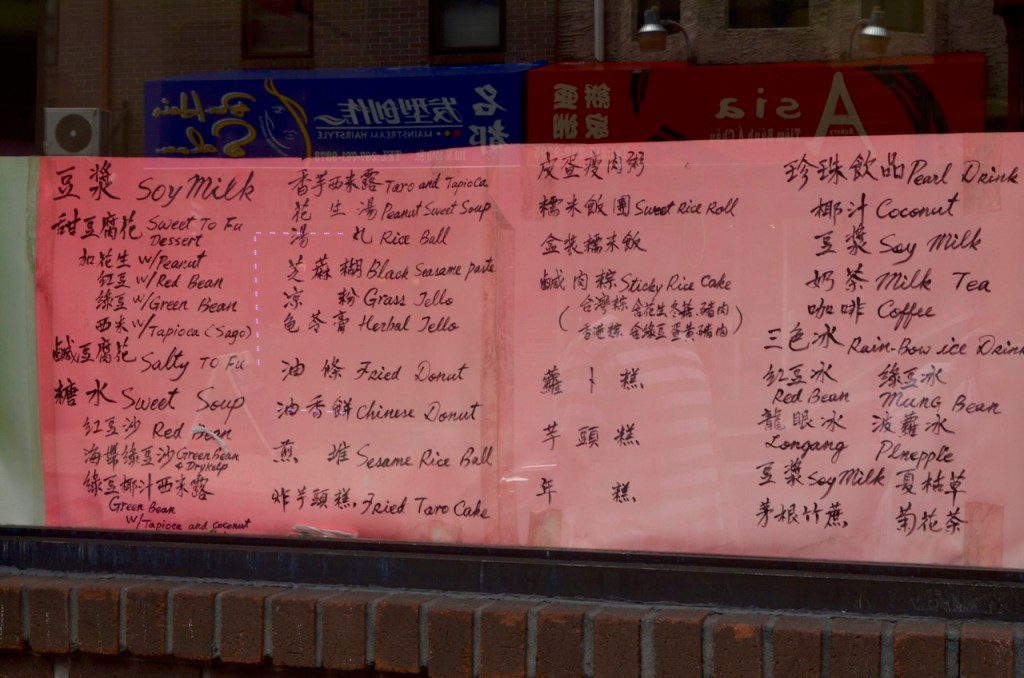 豆漿 Soy Milk
甜豆腐花 Sweet To Fu
Dessert
加花生 w/Peanut
紅豆 w/Red Bean
綠豆 w/Green Bean
西米 w/Tapioca (Sago)
鹹豆腐花 Salty TO Fu
糖水 Sweet Soup
紅豆沙 Red Bean
海帶綠豆沙 Green Bean
& Dry Kelp
綠豆椰汁西米露
Green Bean
w/Tapioca and coconut
香芋西米露 Taro and Tapioca
花生湯 Peanut Sweet Soup
湯丸 Rice Ball
芝蔴糊 Black Seasame paste
凉粉 Grass Jello
龟苓膏 Herbal Jello
油條 Fried Donut
油香餅 Chinese Donut
煎堆 Sesame Rice Ball
炸芋頭糕, Fried Taro Cake
皮蛋瘦肉粥
糯米飯團 Sweet Rice Roll
盒裝糯米飯
鹹肉粽 Sticky Rice Cake
(台灣粽 含花生冬菇,豬肉
香港粽 含綠豆蛋黃豬肉)
蘿卜糕
芋頭糕
年糕
珍珠飲品 Pearl Drink
椰汁 Coconut
豆漿 Soy Milk
奶茶 Milk Tea
咖啡 Coffee
三色冰 Rain-Bow ice Drink
紅豆冰 綠豆冰
Red Bean Mung Bean
龍眼冰 波蘿冰
Longang Plneapple
豆漿 Soy Milk 夏枯草
茅根竹蔗 菊花茶
名都
发型创作
MAINSTREAM HAIRSTYLE
Asia